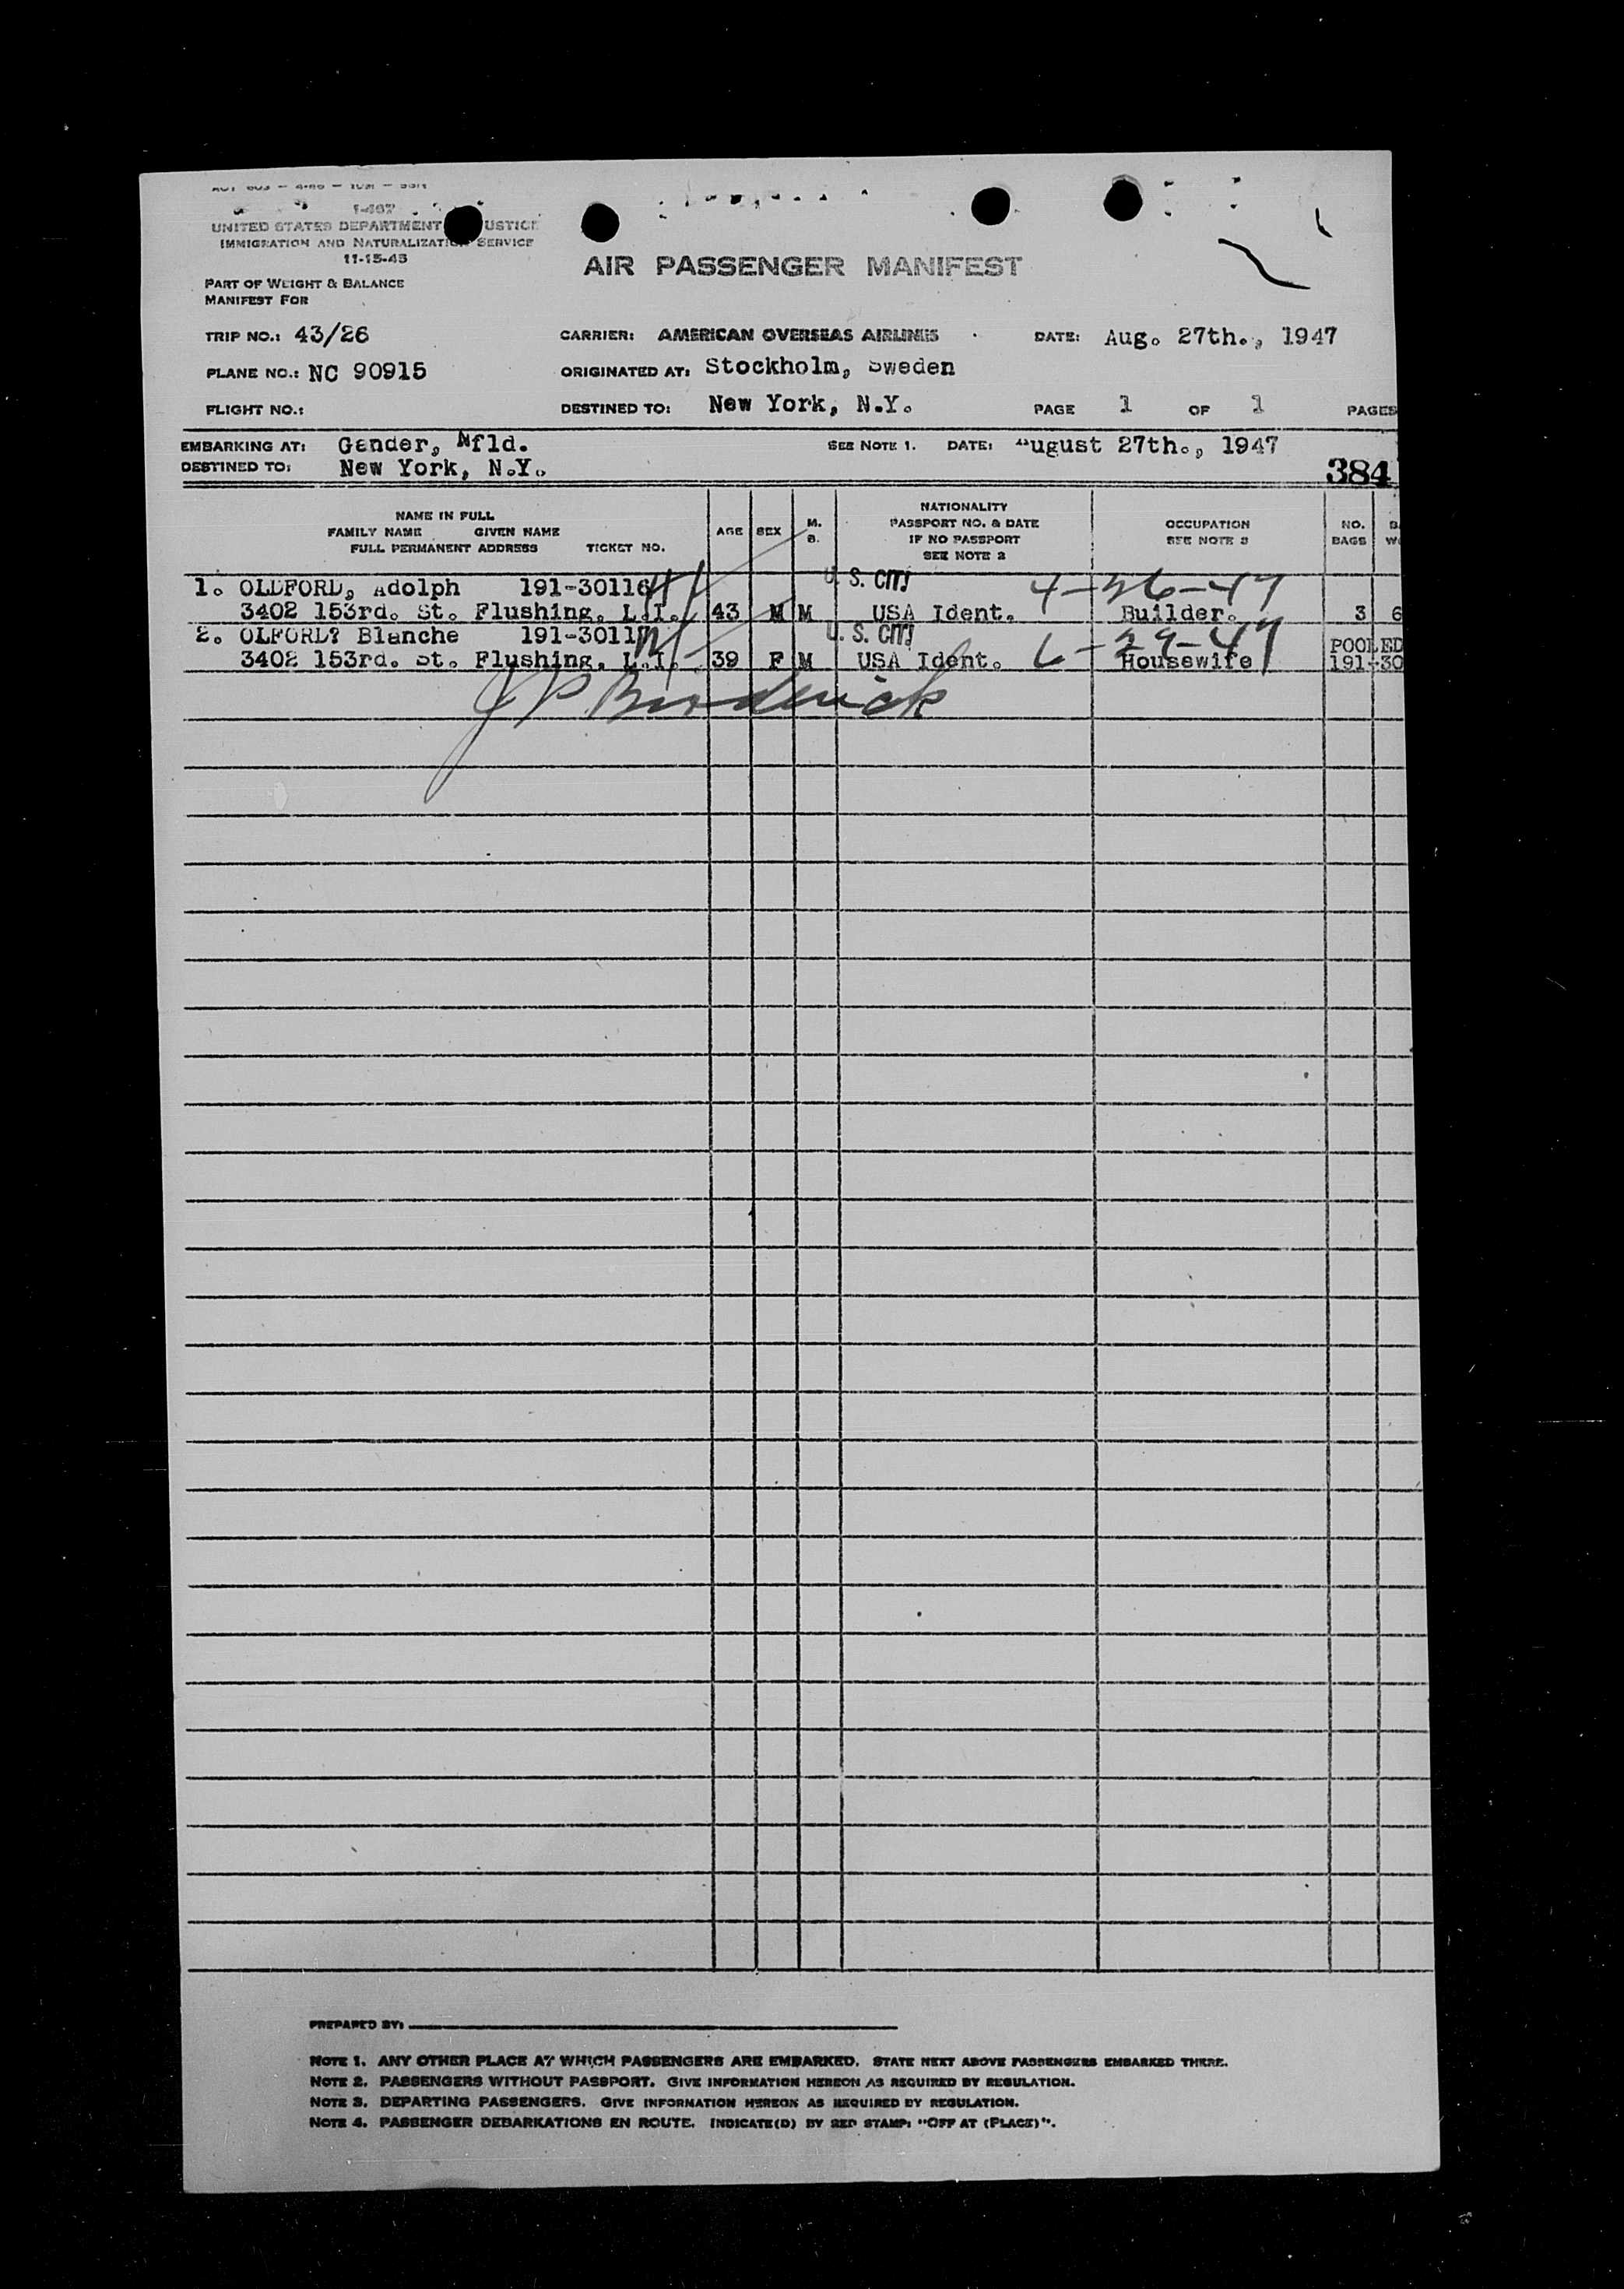 I-467
UNITED STATES DEPARTMENT USTICE
IMMIGRATION AND NATURALIZATION SERVICE
11-15-45
AIR PASSENGER MANIFEST
PART OF WEIGHT & BALANCE
MANIFEST FOR
TRIP NO.: 43/26 CARRIER: AMERICAN OVERSEAS AIRLINES DATE: Aug. 27th., 1947
PLANE NO.: NC 90915 ORIGINATED AT: Stockholm, Sweden
FLIGHT NO.: DESTINED TO: New York, N.Y. PAGE 1 OF 1 PAGES
EMBARKING AT: Gander, Nfld. SEE NOTE 1. DATE: August 27th., 1947
DESTINED TO: New York, N.Y.
384
NAME IN FULL
FAMILY NAME GIVEN NAME
FULL PERMANENT ADDRESS TICKET NO.
AGE SEX M. S.
NATIONALITY
PASSPORT NO. & DATE
IF NO PASSPORT
SEE NOTE 2
OCCUPATION
SEE NOTE 3
NO.
BAGS
1. OLDFORD, Adolph 191-30116 U. S. CIT. 4-26-47
3402 153rd. St. Flushing, L.I. 43 M M USA Ident. Builder. 3 6
2. OLFORD? Blanche 191-3011 U. S. CIT. 6-29-47 POOLED
3402 153rd. St. Flushing, L.I. 39 F M USA Ident. Housewife 191-30
J P Broderick
PREPARED BY:
NOTE 1. ANY OTHER PLACE AT WHICH PASSENGERS ARE EMBARKED. STATE NEXT ABOVE PASSENGERS EMBARKED THERE.
NOTE 2. PASSENGERS WITHOUT PASSPORT. GIVE INFORMATION HEREON AS REQUIRED BY REGULATION.
NOTE 3. DEPARTING PASSENGERS. GIVE INFORMATION HEREON AS REQUIRED BY REGULATION.
NOTE 4. PASSENGER DEBARKATIONS EN ROUTE. INDICATE(D) BY RED STAMP: "OFF AT (PLACE)".